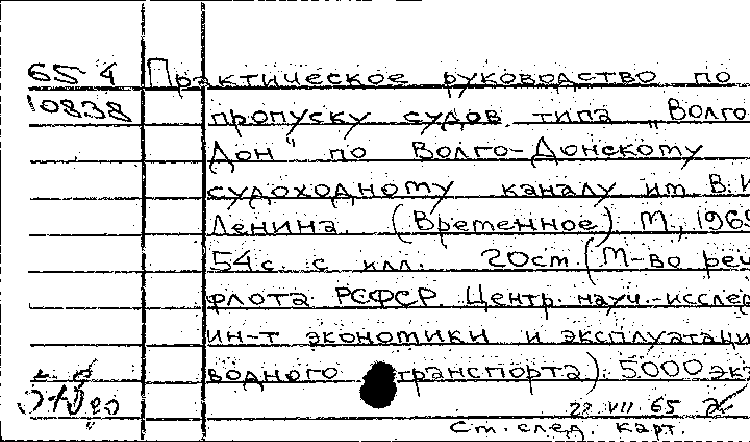 65-4 Практическое руководство по
10838 пропуску судов типа „Волго
Дон" по Волго-Донскому
судоходному каналу им В. И
Ленина. (Временное) М, 196
54 с. с илл. 20 см. (М-во реч
флота РСФСР. Центр. науч.-исслед
ин-т экономики и эксплуатаци
водного транспорта). 5000 экз
22 VII 65
См. след. карт.